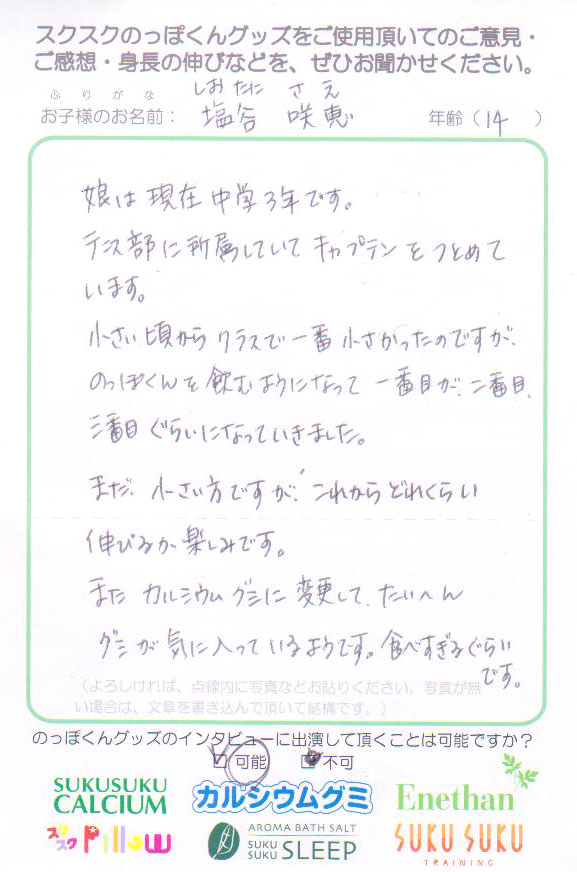 スクスクのっぽくんグッズをご使用頂いてのご意見・
ご感想・身長の伸びなどを、ぜひお聞かせください。
ふりがな しおたに さえ
お子様のお名前: 塩谷 咲恵 年齢(14)
娘は現在中学3年です。
テニス部に所属していてキャプテンをつとめて
います。
小さい頃からクラスで一番小さかったのですが、
のっぽくんを飲むようになって一番目が、二番目、
三番目ぐらいになっていきました。
まだ、小さい方ですが、これからどれくらい
伸びるか楽しみです。
また カルシウムグミに変更して、たいへん
グミが気に入っているようです。食べすぎるぐらい
です。
(よろしければ、点線内に写真などお貼りください。写真が無
い場合は、文章を書き込んで頂いて結構です。)
のっぽくんグッズのインタビューに出演して頂くことは可能ですか?
可能 不可
SUKUSUKU
CALCIUM
カルシウムグミ
Enethan
スクスク Pillow
AROMA BATH SALT
SUKU
SUKU SLEEP
SUKU SUKU
TRAINING